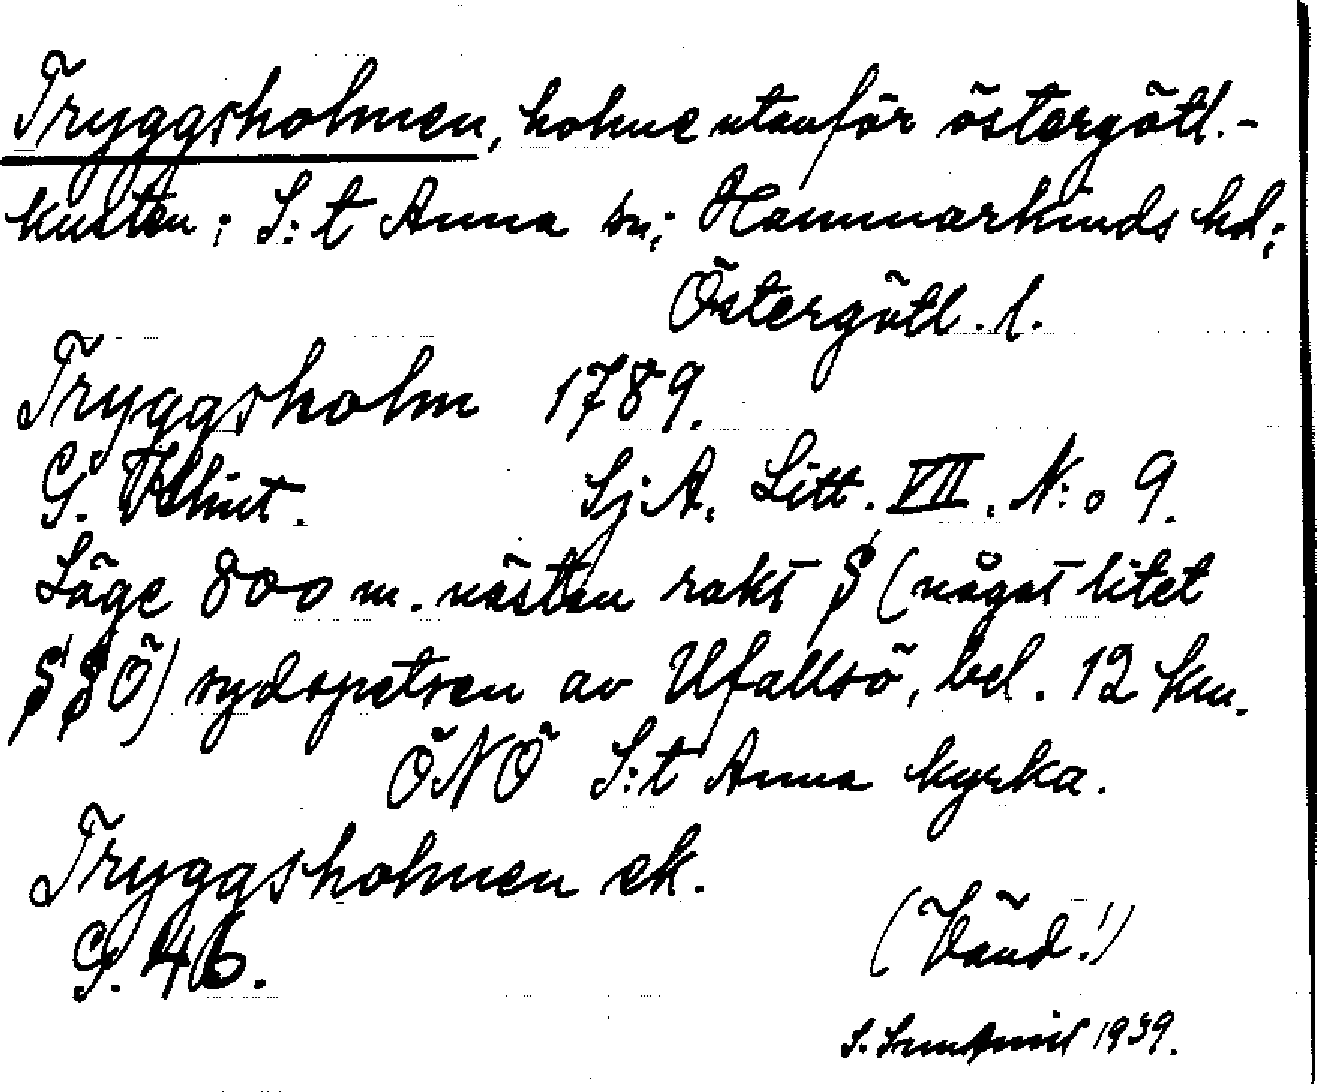 Tryggsholmen, holme utanför östergötl.-
kusten; S:t Anna sn; Hammarkinds hd;
Östergötl. l.
Tryggsholm 1789.
G. Klint. Sj. A. Litt. VII. N:o 9.
Läge 800 m. nästan rakt S (något litet
SSÖ) sydspetsen av Ufallsö, bel. 12 km.
ÖNÖ S:t Anna kyrka.
Tryggsholmen ek.
G. 46.
(Vänd!)
S. 1939.